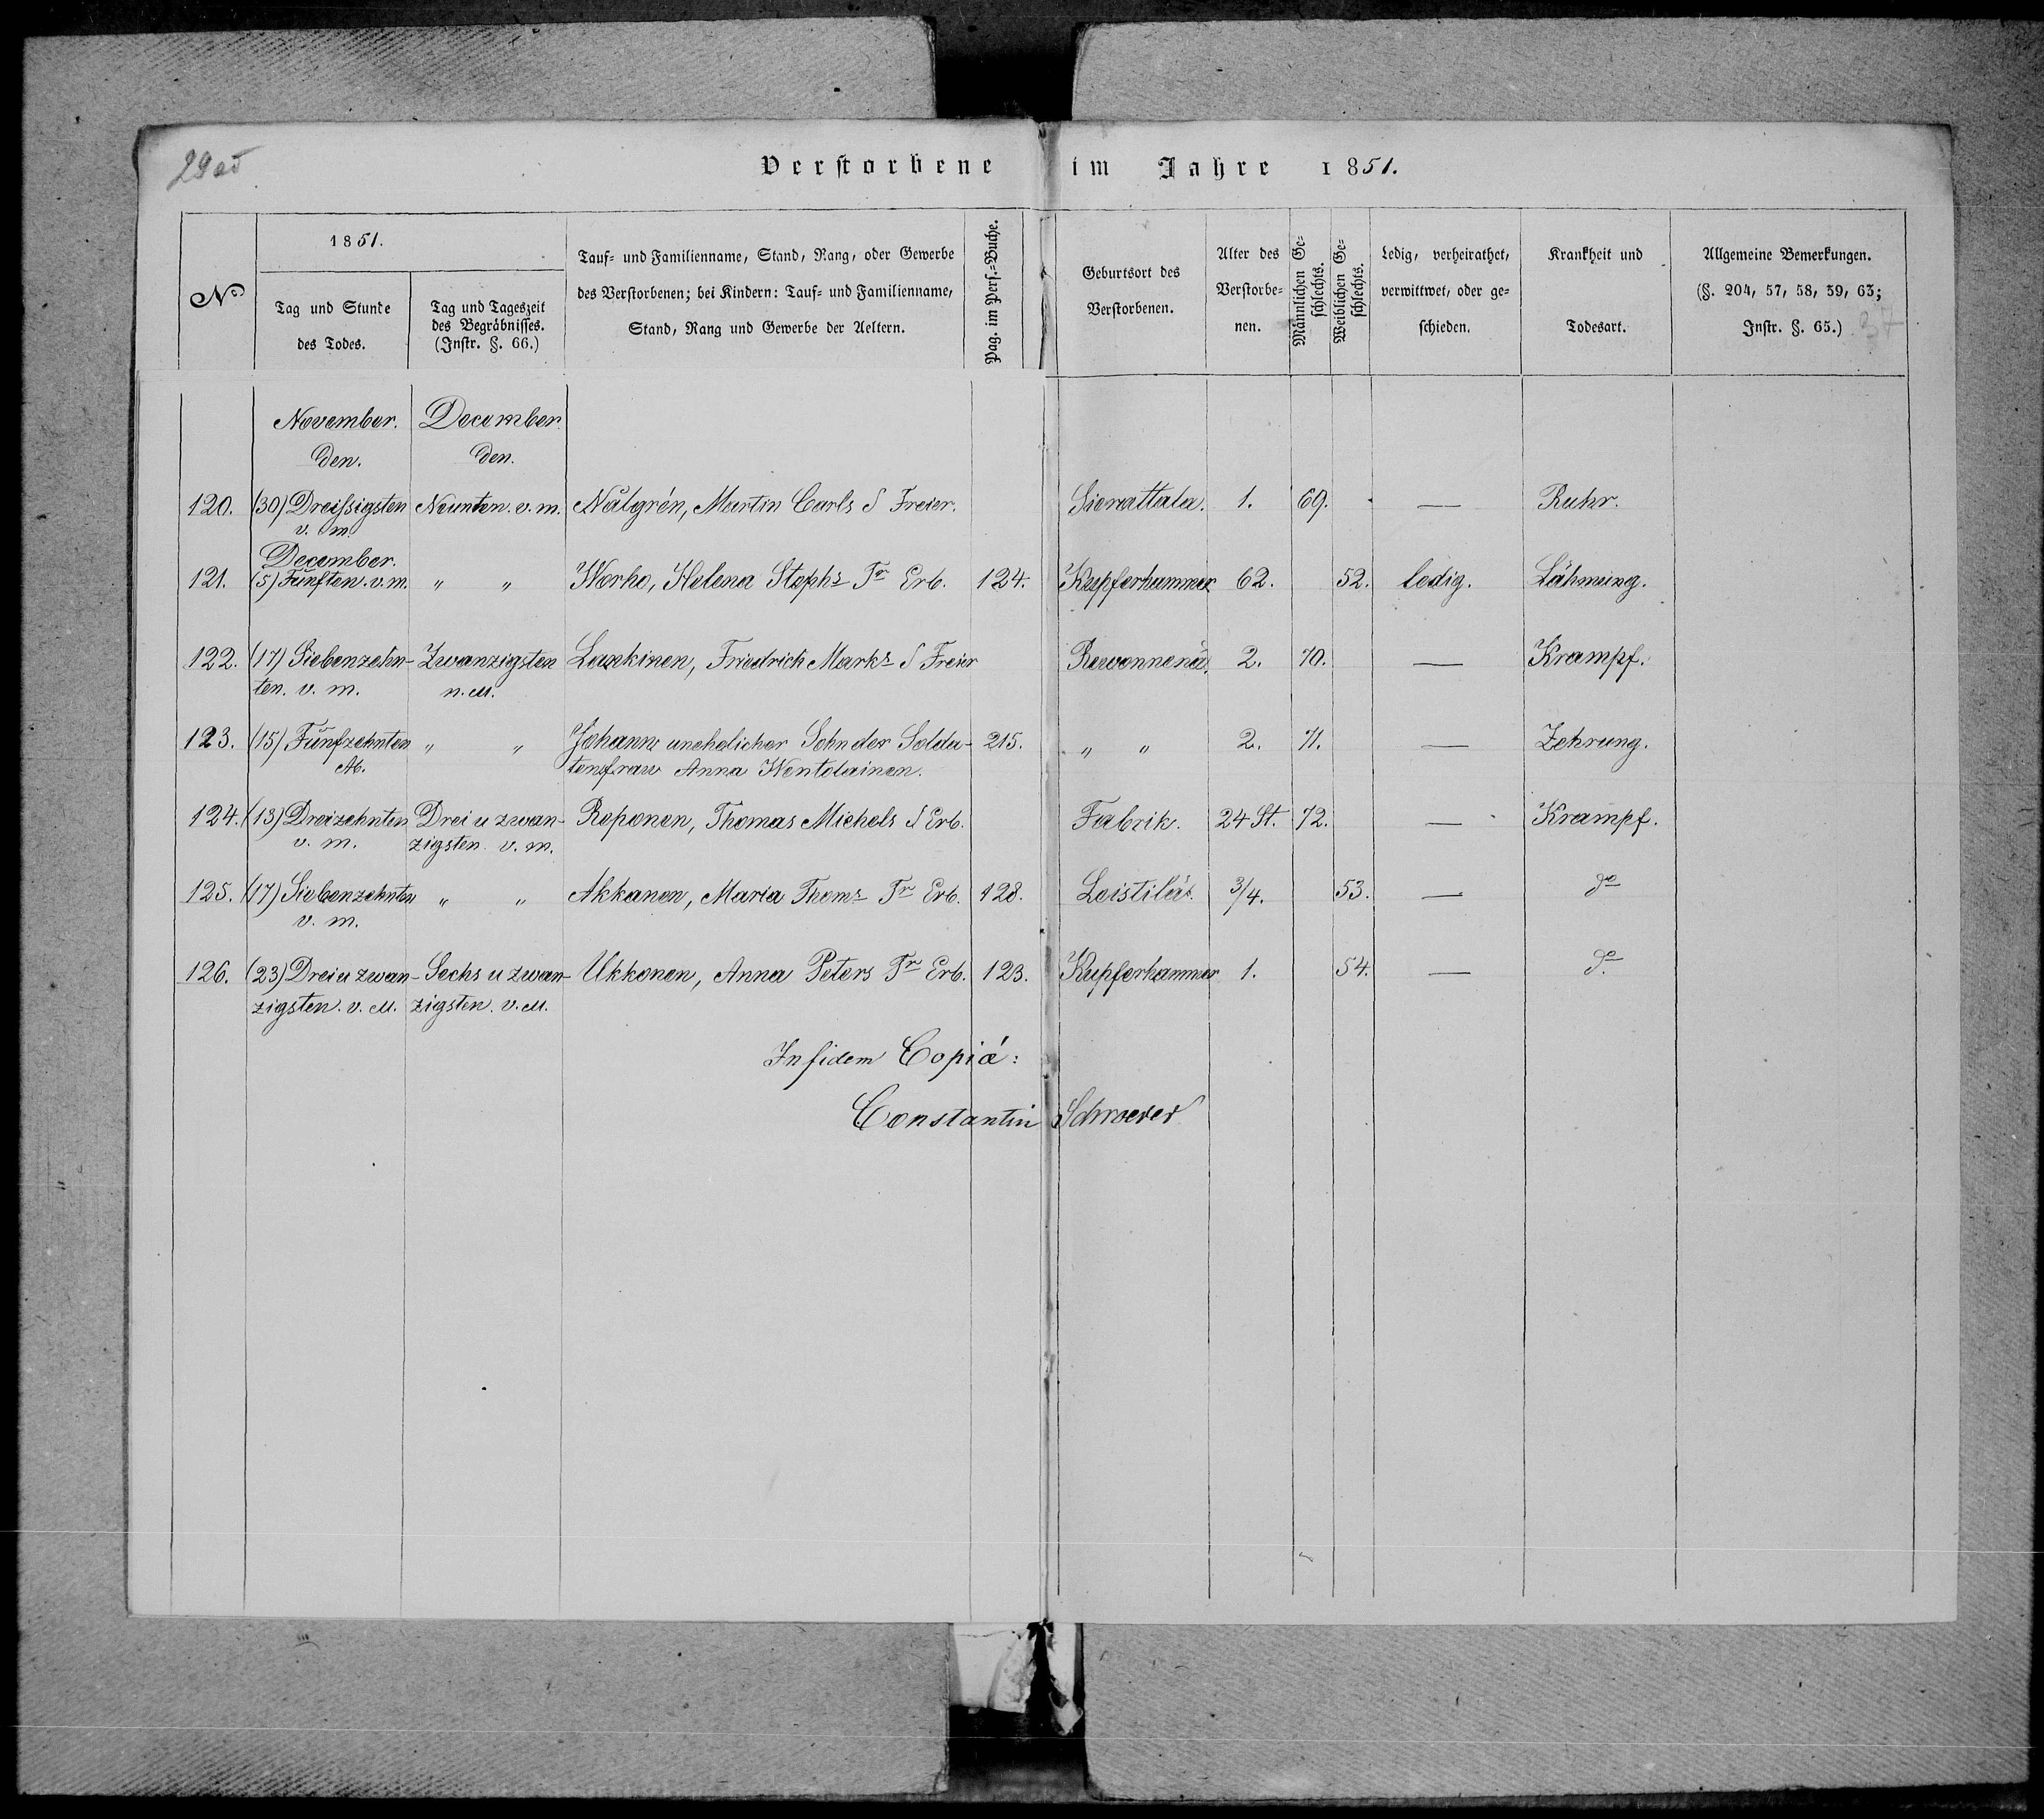 Verstorbene im Jahre 1851.
No
1851.
Tag und Stunde des Todes.
Tag und Tageszeit des Begräbnisses. (Instr. §. 66.)
Tauf- und Familienname, Stand, Rang, oder Gewerbe
des Verstorbenen; bei Kindern: Tauf- und Familienname,
Stand, Rang und Gewerbe der Aeltern.
Pag. im Pers.-Buche.
Geburtsort des Verstorbenen.
Alter des Verstorbe-nen.
Männlichen Ge-schlechts.
Weiblichen Ge-schlechts.
Ledig, verheirathet, verwittwet, oder ge-schieden.
Krankheit und Todesart.
Allgemeine Bemerkungen.
(§. 204, 57, 58, 59, 63;
Instr. §. 65.) 37
November. December.
den. den.
120. (30) Dreissigsten Neunten. v. m. Nålgrén, Martin Carls S Freier. Sierattala. 1. 69. — Ruhr.
v. m.
December.
121. (5) Fünften. v. m. " " Worho, Helena Stephs Tr Erb. 124. Kupferhammer 62. 52. ledig. Lähmung.
122. (17) Siebenzehn- Zwanzigsten Laxkinen, Friedrich Marks S Freier Rewonnenä. 2. 70. — Krampf.
ten. v. m. n. M.
123. (15) Fünfzehnten " " Johann unehelicher Sohn der Solda- 215. " " 2. 71. — Zehrung.
Ab. tenfrau Anna Wentelainen.
124. (13) Dreizehnten Drei u zwan- Roponen, Thomas Michels S Erb. Fabrik. 24 St. 72. — Krampf.
v. m. zigsten v. m.
125. (17) Siebenzehnten " " Akkanen, Maria Thoms Tr Erb. 128. Loistilä. 3/4. 53. — do
v. m.
126. (23) Drei u zwan- Sechs u zwan- Ukkonen, Anna Peters Tr Erb. 123. Kupferhammer 1. 54. — do
zigsten. v. M. zigsten. v. M.
In fidem Copiæ:
Constantin Schwerer